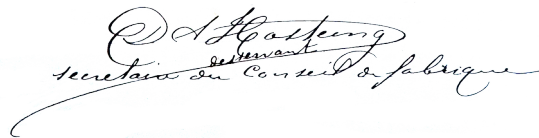 D A Hosteing
desservant
secretaire du Conseil de fabrique